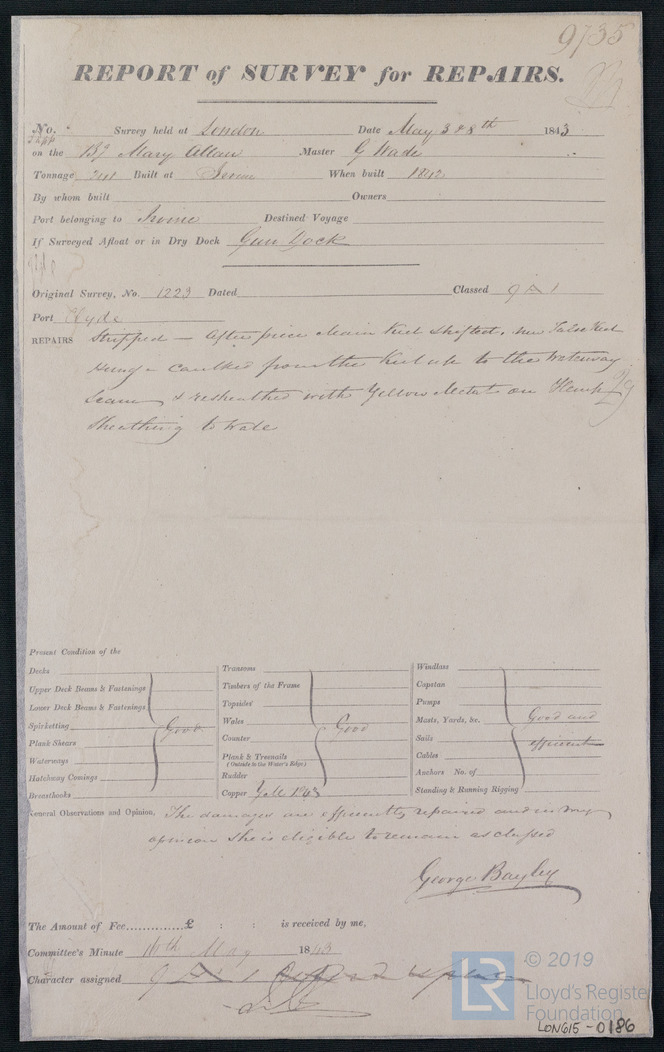 9735
REPORT of SURVEY for REPAIRS.
No. Survey held at London Date May 3 & 8th 1843
on the Bg Mary Allan Master G Wade
Tonnage 241 Built at Irvine When built 1842
By whom built Owners
Port belonging to Irvine Destined Voyage
If Surveyed Afloat or in Dry Dock Gun Dock
Original Survey, No. 1223 Dated Classed 9 A 1
Port Clyde
REPAIRS Stripped — After piece Main Keel shifted. New False Keel
hung & caulked from the Keel up to the Waterway
Seams & resheathed with Yellow Metal on Hemp
Sheathing to Wale
Present Condition of the
Decks
Upper Deck Beams & Fastenings
Lower Deck Beams & Fastenings
Spirketting Good
Plank Shears
Waterways
Hatchway Comings
Breasthooks
Transoms
Timbers of the Frame
Topsides
Wales Good
Counter
Plank & Treenails
(Outside to the Water's Edge)
Rudder
Copper Y.M. 1843
Windlass
Capstan
Pumps
Masts, Yards, &c. Good and
Sails efficient
Cables
Anchors No. of
Standing & Running Rigging
General Observations and Opinion, The damages are efficiently repaired and in my
opinion she is eligible to remain as classed
George Bayley
The Amount of Fee............... £ : : is received by me,
Committee's Minute 16th May 1843
Character assigned 9 A 1
LR © 2019
Lloyd's Register
Foundation
LON615-0186